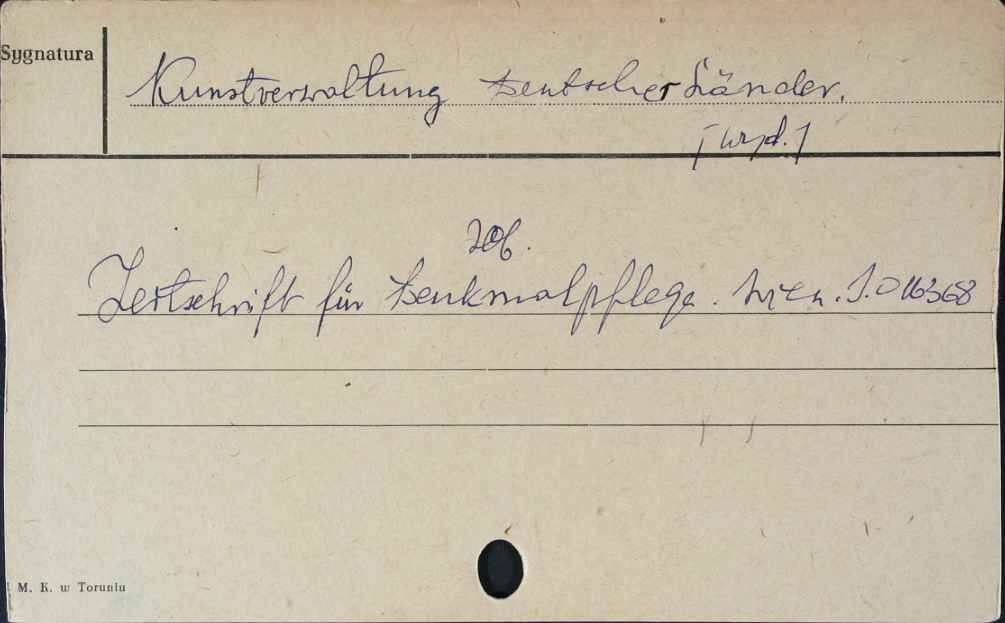 Sygnatura
Kunstverwaltung Deutscher Länder.
[wyd.]
zob.
Zeitschrift für Denkmalpflege. Wien. S.0 116368
U M. K. w Toruniu